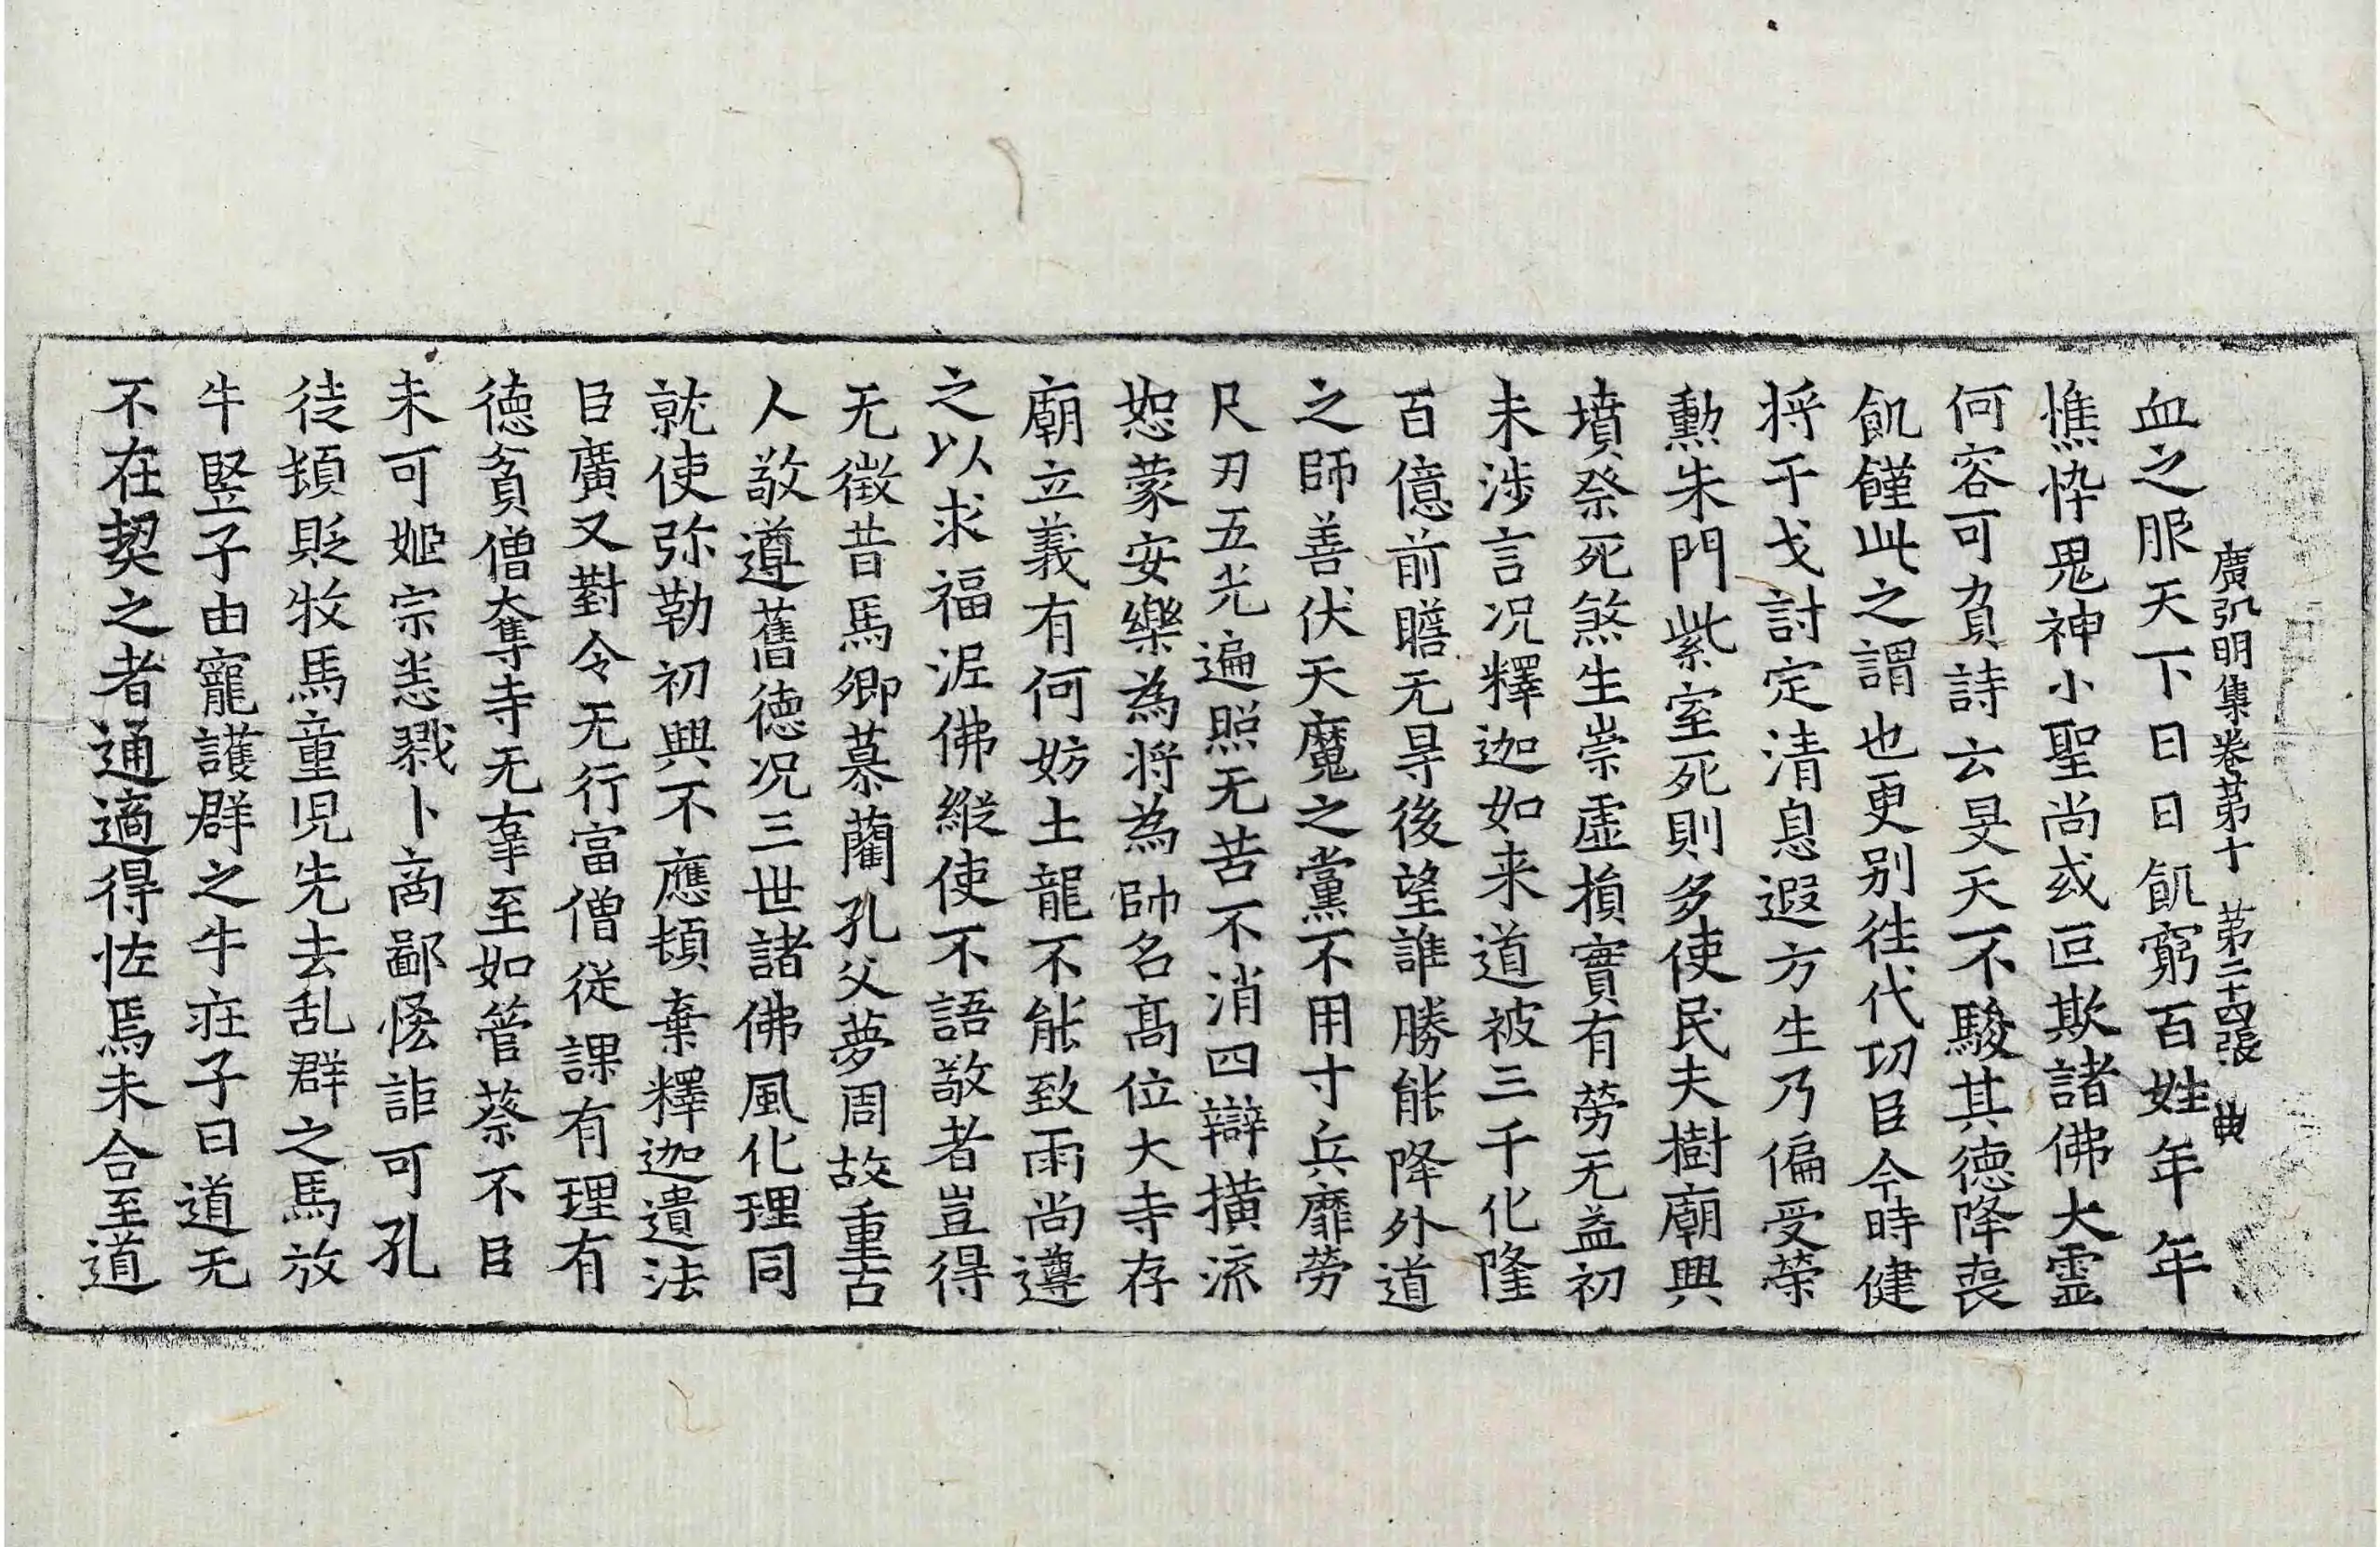 廣弘明集卷第十 第二十四張 典
血之服天下日日飢窮百姓年年
憔悴鬼神小聖尚或叵欺諸佛大靈
何容可負詩云旻天不駿其德降喪
飢饉此之謂也更別往代功臣今時健
将干戈討定清息遐方生乃偏受榮
勲朱門紫室死則多使民夫樹廟興
墳祭死煞生崇虛損實有勞无益初
未涉言況釋迦如来道被三千化隆
百億前瞻无㝵後望誰勝能降外道
之師善伏天魔之黨不用寸兵靡勞
尺刃五光遍照无苦不消四辯撗流
恕蒙安樂為将為帥名髙位大寺存
廟立義有何妨土龍不能致雨尚遵
之以求福泥佛縱使不語敬者豈得
无徵昔馬卿慕藺孔父夢周故重古
人敬遵舊德况三世諸佛風化理同
就使弥勒初興不應頓棄釋迦遺法
臣廣又對令无行富僧從課有理有
德貧僧奪寺无辜至如管蔡不臣
未可姬宗悉戮卜啇鄙悋詎可孔
徒頓貶牧馬童児先去乱群之馬放
牛竪子由寵護群之牛庄子曰道无
不在契之者通適得怪焉未合至道